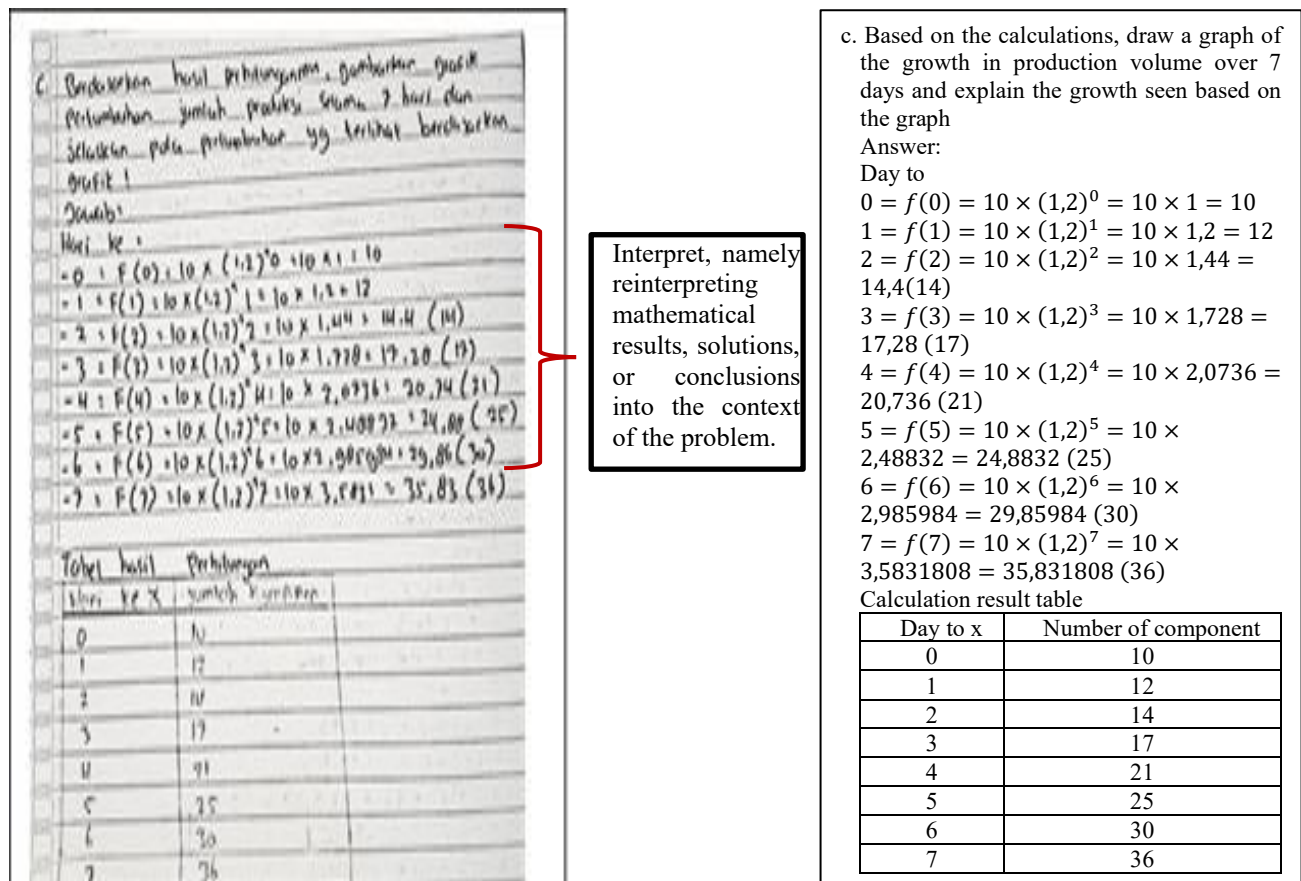 C Berdasarkan hasil perhitungan, gambarkan grafik
Pertumbuhan jumlah produksi selama 7 hari dan
jelaskan pola pertumbuhan yg terlihat berdasarkan
grafik !
Jawab:
Hari ke :
-0 : F(0) : 10 x (1,2)^0 : 10 x 1 : 10
-1 : F(1) : 10 x (1,2)^1 : 10 x 1,2 = 12
-2 : F(2) : 10 x (1,2)^2 : 10 x 1,44 : 14,4 (14)
-3 : F(3) : 10 x (1,2)^3 : 10 x 1,728 : 17,28 (17)
-4 : F(4) : 10 x (1,2)^4 : 10 x 2,0736 : 20,74 (21)
-5 : F(5) : 10 x (1,2)^5 : 10 x 2,48832 : 24,88 (25)
-6 : F(6) : 10 x (1,2)^6 : 10 x 2,985984 : 29,86 (30)
-7 : F(7) : 10 x (1,2)^7 : 10 x 3,5831 : 35,83 (36)
Tabel hasil Perhitungan
Hari ke x jumlah
0 10
1 12
2 14
3 17
4 21
5 25
6 30
7 36
Interpret, namely
reinterpreting
mathematical
results, solutions,
or conclusions
into the context
of the problem.
c. Based on the calculations, draw a graph of
the growth in production volume over 7
days and explain the growth seen based on
the graph
Answer:
Day to
0 = f(0) = 10 × (1,2)⁰ = 10 × 1 = 10
1 = f(1) = 10 × (1,2)¹ = 10 × 1,2 = 12
2 = f(2) = 10 × (1,2)² = 10 × 1,44 =
14,4(14)
3 = f(3) = 10 × (1,2)³ = 10 × 1,728 =
17,28 (17)
4 = f(4) = 10 × (1,2)⁴ = 10 × 2,0736 =
20,736 (21)
5 = f(5) = 10 × (1,2)⁵ = 10 ×
2,48832 = 24,8832 (25)
6 = f(6) = 10 × (1,2)⁶ = 10 ×
2,985984 = 29,85984 (30)
7 = f(7) = 10 × (1,2)⁷ = 10 ×
3,5831808 = 35,831808 (36)
Calculation result table
Day to x Number of component
0 10
1 12
2 14
3 17
4 21
5 25
6 30
7 36